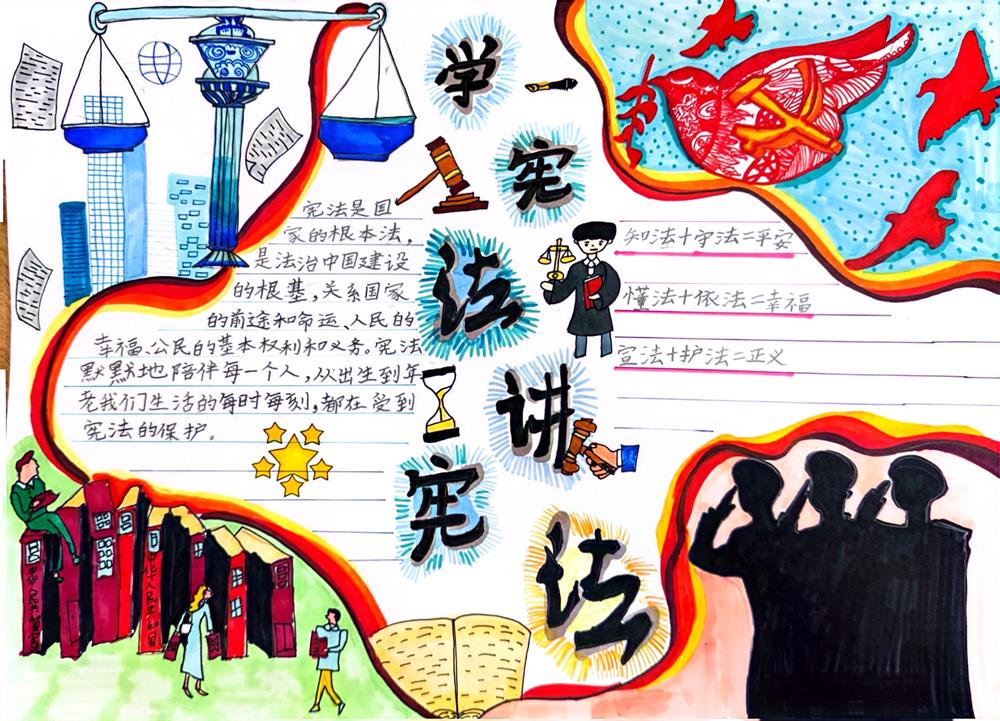 学宪法讲宪法
宪法是国
家的根本法，
是法治中国建设
的根基，关系国家
的前途和命运、人民的
幸福、公民的基本权利和义务。宪法
默默地陪伴每一个人，从出生到年
老我们生活的每时每刻，都在受到
宪法的保护。
知法+守法=平安
懂法+依法=幸福
宣法+护法=正义